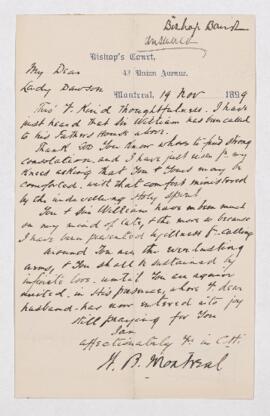 Bishop
Bishop's Court,
42 Union Avenue.
My Dear
Lady Dawson
Montreal, 19 Nov 1899
Thro' Y. kind thoughtfulness. I have
just heard that Sir William has been called
to his Fathers House above.
Thank God You Know where to find strong
consolation, and I have just risen fr. my
knees asking that You & Yours may be
comforted, with that comfort ministered
by the indwelling Holy Spirit
You & Sir William have been much
on my mind of late, & the more so because
I have been prevented by illness fr. calling
around You are the everlasting
arms, & You shall be sustained by
infinite love. until You are again
united, in His presence, where Yr dear
husband has now entered into joy
Still praying for You
I am
affectionately Yr in Ct.
W. B. Montreal